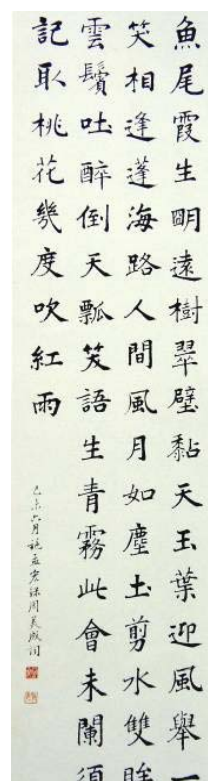 魚尾霞生明遠樹翠壁黏天玉葉迎風舉一
笑相逢蓬海路人間風月如塵土剪水雙眸
雲鬢吐醉倒天瓢笑語生青霧此會未闌須
記取桃花幾度吹紅雨
己未六月施孟宏錄周美成詞